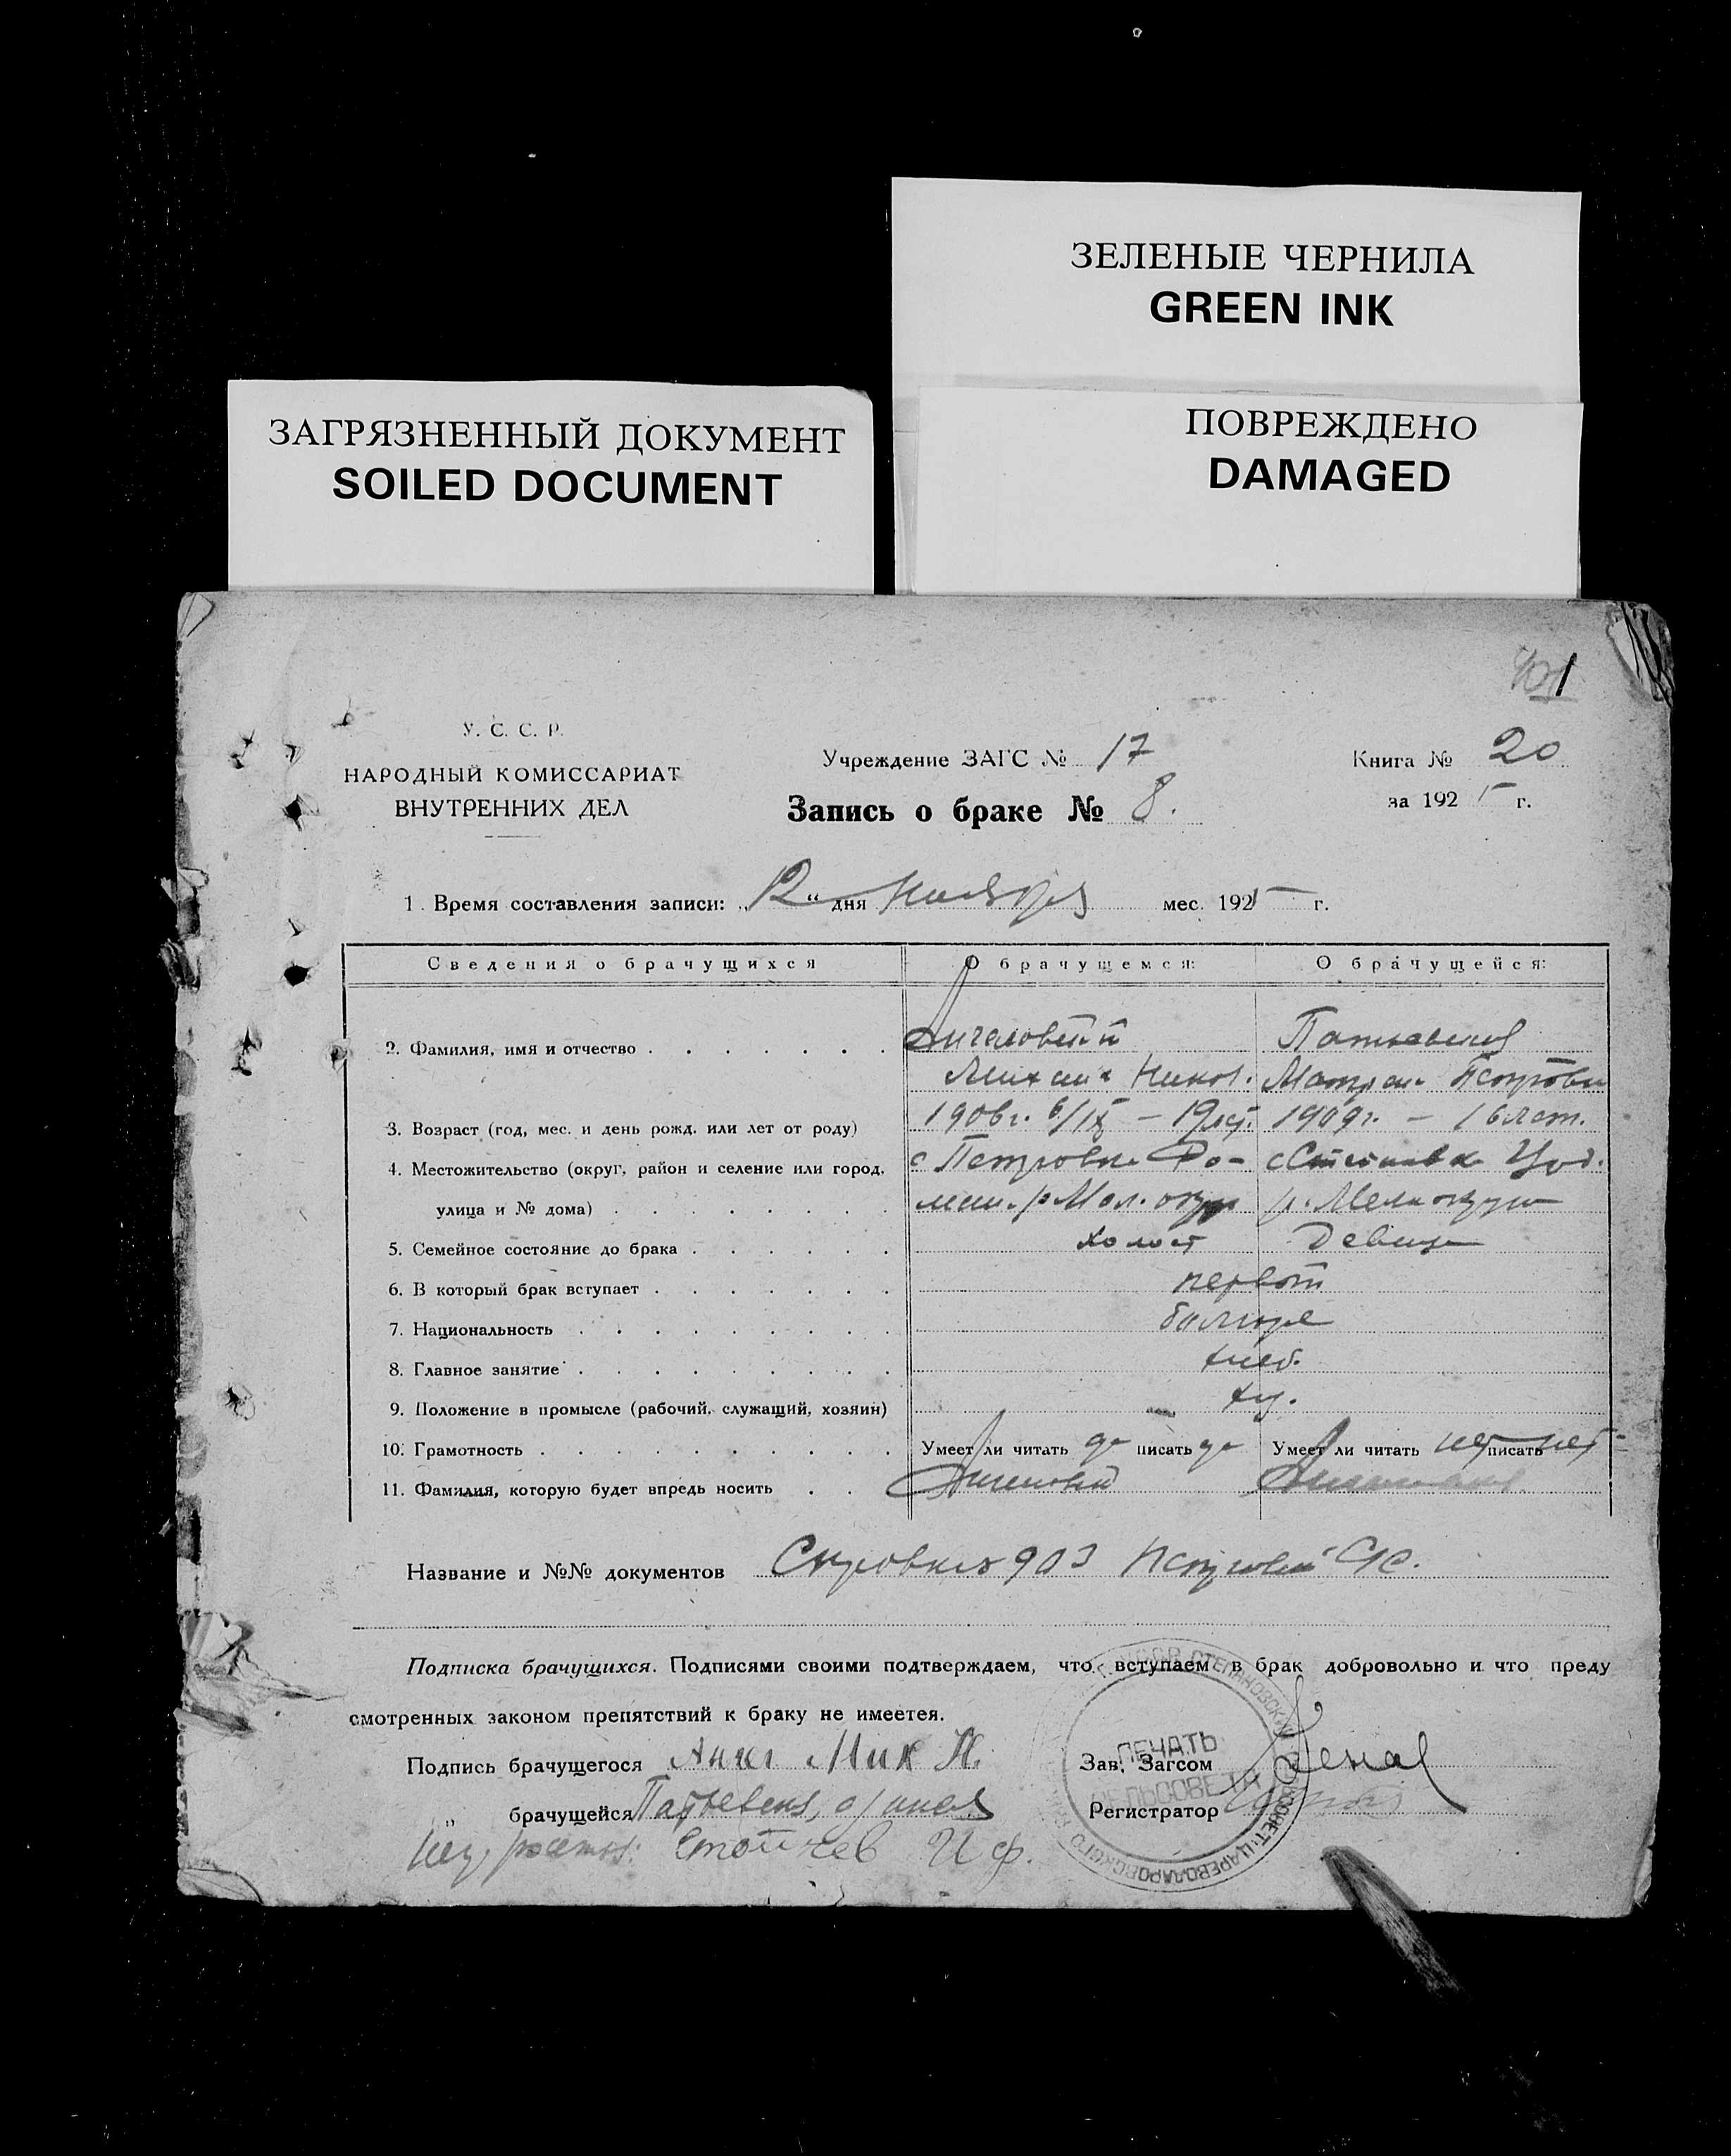 ЗЕЛЕНЫЕ ЧЕРНИЛА
GREEN INK
ЗАГРЯЗНЕННЫЙ ДОКУМЕНТ
SOILED DOCUMENT
ПОВРЕЖДЕНО
DAMAGED
1
У. С. С. Р.
НАРОДНЫЙ КОМИССАРИАТ
ВНУТРЕННИХ ДЕЛ
Учреждение ЗАГС № 17
Книга № 20
Запись о браке № 8.
за 1925 г.
1. Время составления записи: „12“ дня Ноября мес. 1925 г.
Сведения о брачущихся О брачущемся: О брачущейся:
2. Фамилия, имя и отчество
Михаил Никол. Петровн
3. Возраст (год, мес. и день рожд. или лет от роду) 1906г. 6/IX – 19 лет. 1909г. – 16 лет.
4. Местожительство (округ, район и селение или город, с Петровка Ро- с Степановка Цод.
улица и № дома) ман. р Мел. окру р. Мели округа
5. Семейное состояние до брака холост Девица
6. В который брак вступает первый
7. Национальность болгоре
8. Главное занятие хлеб.
9. Положение в промысле (рабочий, служащий, хозяин) хоз.
10. Грамотность Умеет ли читать да писать да Умеет ли читать нет писать нет
11. Фамилия, которую будет впредь носить
Название и №№ документов Справка 903 Петровский С/С.
Подписка брачущихся. Подписями своими подтверждаем, что вступаем в брак добровольно и что преду
смотренных законом препятствий к браку не имеетея.
Подпись брачущегося Мих Н. Зав. Загсом
„ брачущейся Регистратор
Стойчев И Ф.
ПЕЧАТЬ
СЕЛЬСОВЕТА